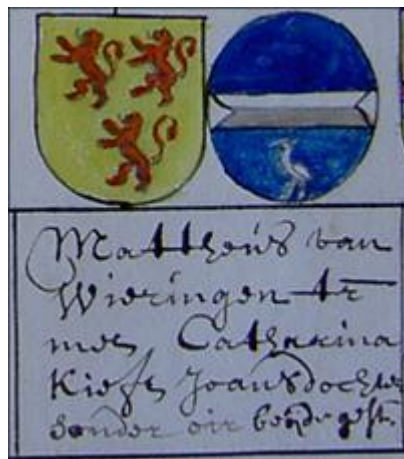 Mattheüs van
Wieringen tr
met Catharina
Kieft Joansdochter
sonder oir beyde gest.